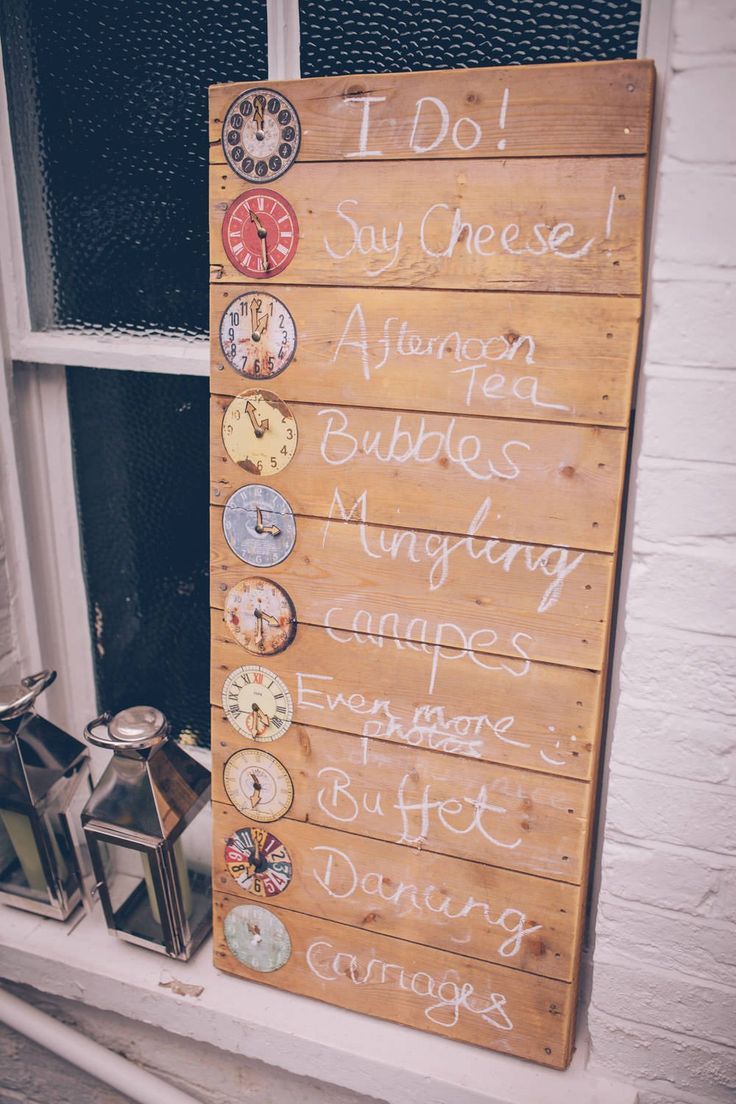 I Do!
Say Cheese!
Afternoon
Tea
Bubbles
Mingling
canapes
Even more
photos :)
Buffet
Dancing
Carriages